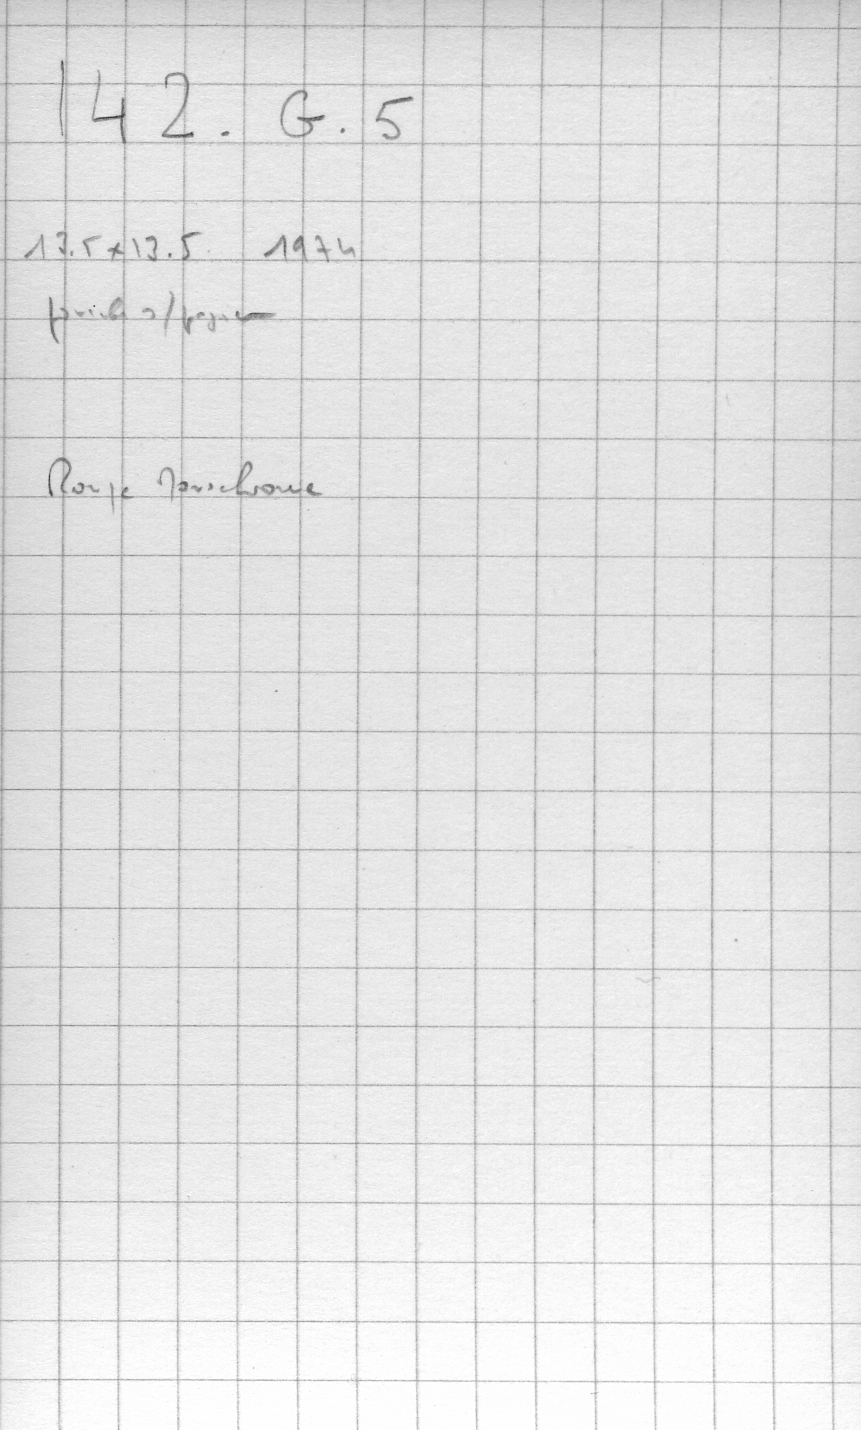 142. G. 5
13.5 x 13.5 1974
s/papier
Rouge Monochrome